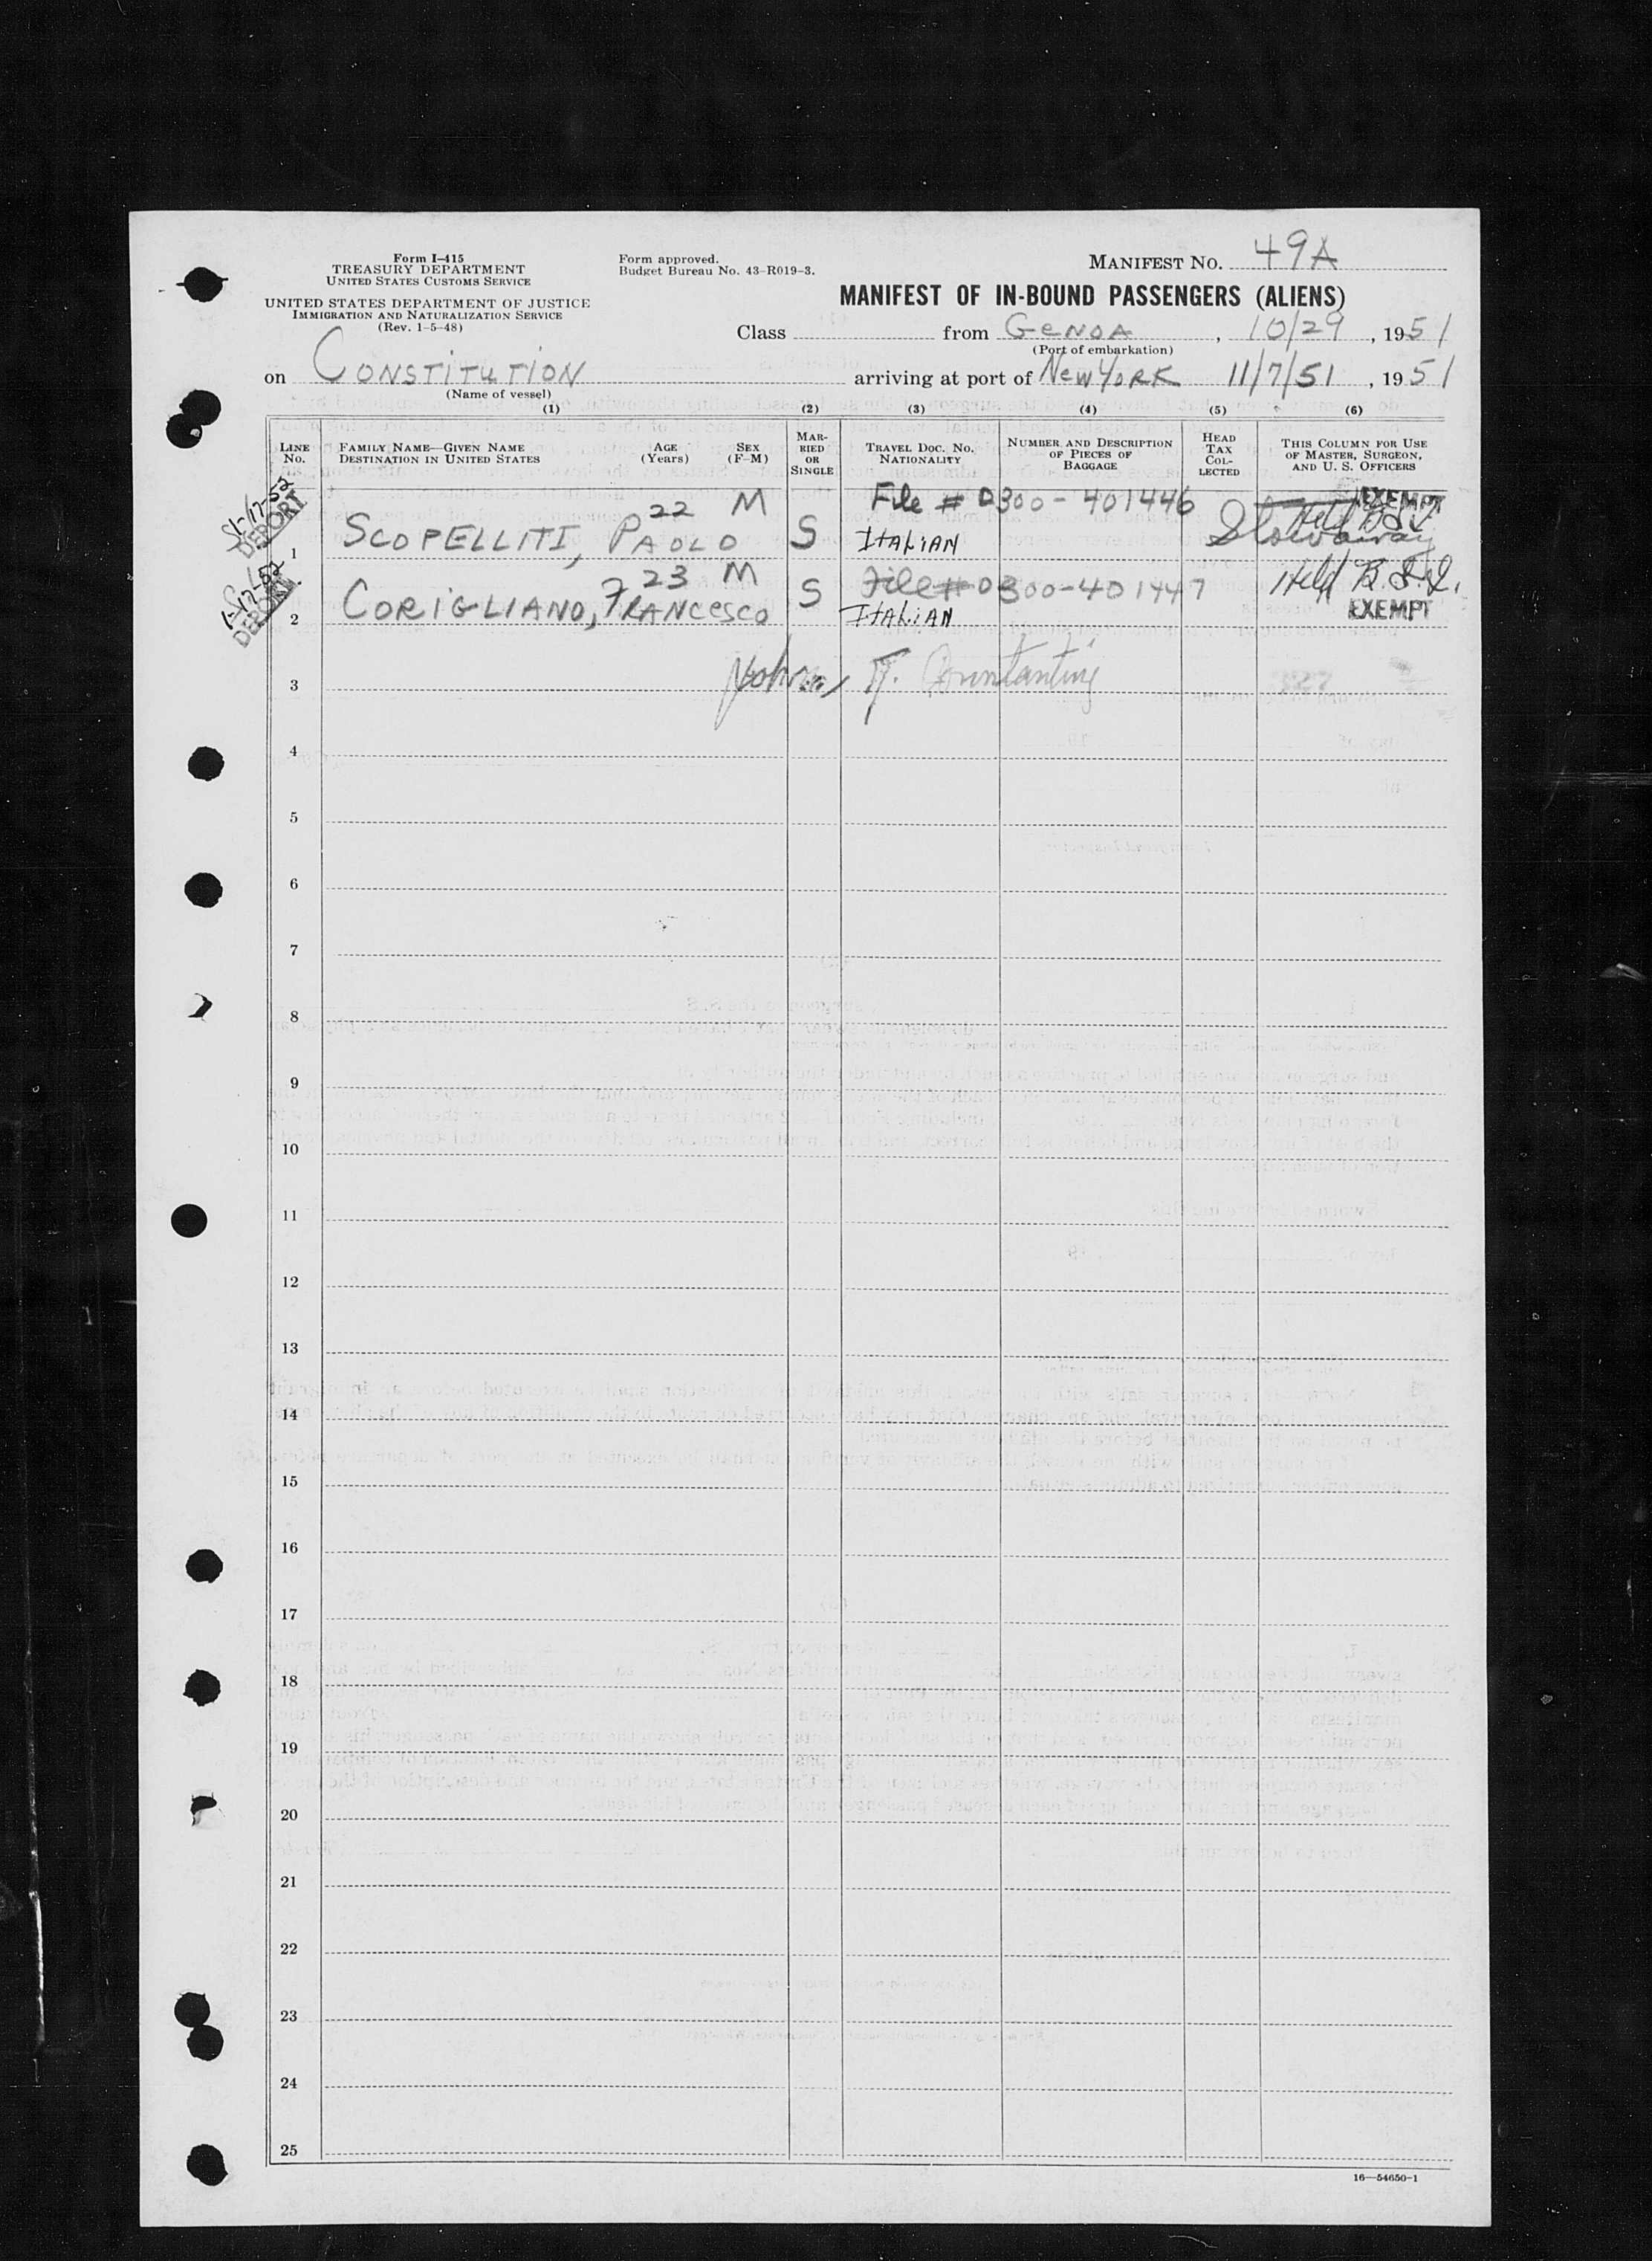 Form I-415
TREASURY DEPARTMENT
UNITED STATES CUSTOMS SERVICE
UNITED STATES DEPARTMENT OF JUSTICE
IMMIGRATION AND NATURALIZATION SERVICE
(Rev. 1-5-48)
Form approved.
Budget Bureau No. 43-R019-3.
MANIFEST NO. 49A
MANIFEST OF IN-BOUND PASSENGERS (ALIENS)
Class from GENOA, 10/29, 1951
(Port of embarkation)
on CONSTITUTION arriving at port of NEW YORK 11/7/51, 1951
(Name of vessel)
(1) (2) (3) (4) (5) (6)
LINE No. FAMILY NAME—GIVEN NAME DESTINATION IN UNITED STATES AGE (Years) SEX (F-M) MARRIED OR SINGLE TRAVEL DOC. NO. NATIONALITY NUMBER AND DESCRIPTION OF PIECES OF BAGGAGE HEAD TAX COLLECTED THIS COLUMN FOR USE OF MASTER, SURGEON, AND U. S. OFFICERS
1-17-52 DEPORT 22 M File # 0300-401446 EXEMPT Held B.S.I.
1 SCOPELLITI, PAOLO S ITALIAN Stowaway
1-17-52 DEPORT 23 M File # 0300-401447 Held B.S.I.
2 CORIGLIANO, FRANCESCO S ITALIAN EXEMPT
3
4
5
6
7
8
9
10
11
12
13
14
15
16
17
18
19
20
21
22
23
24
25
16—54650-1